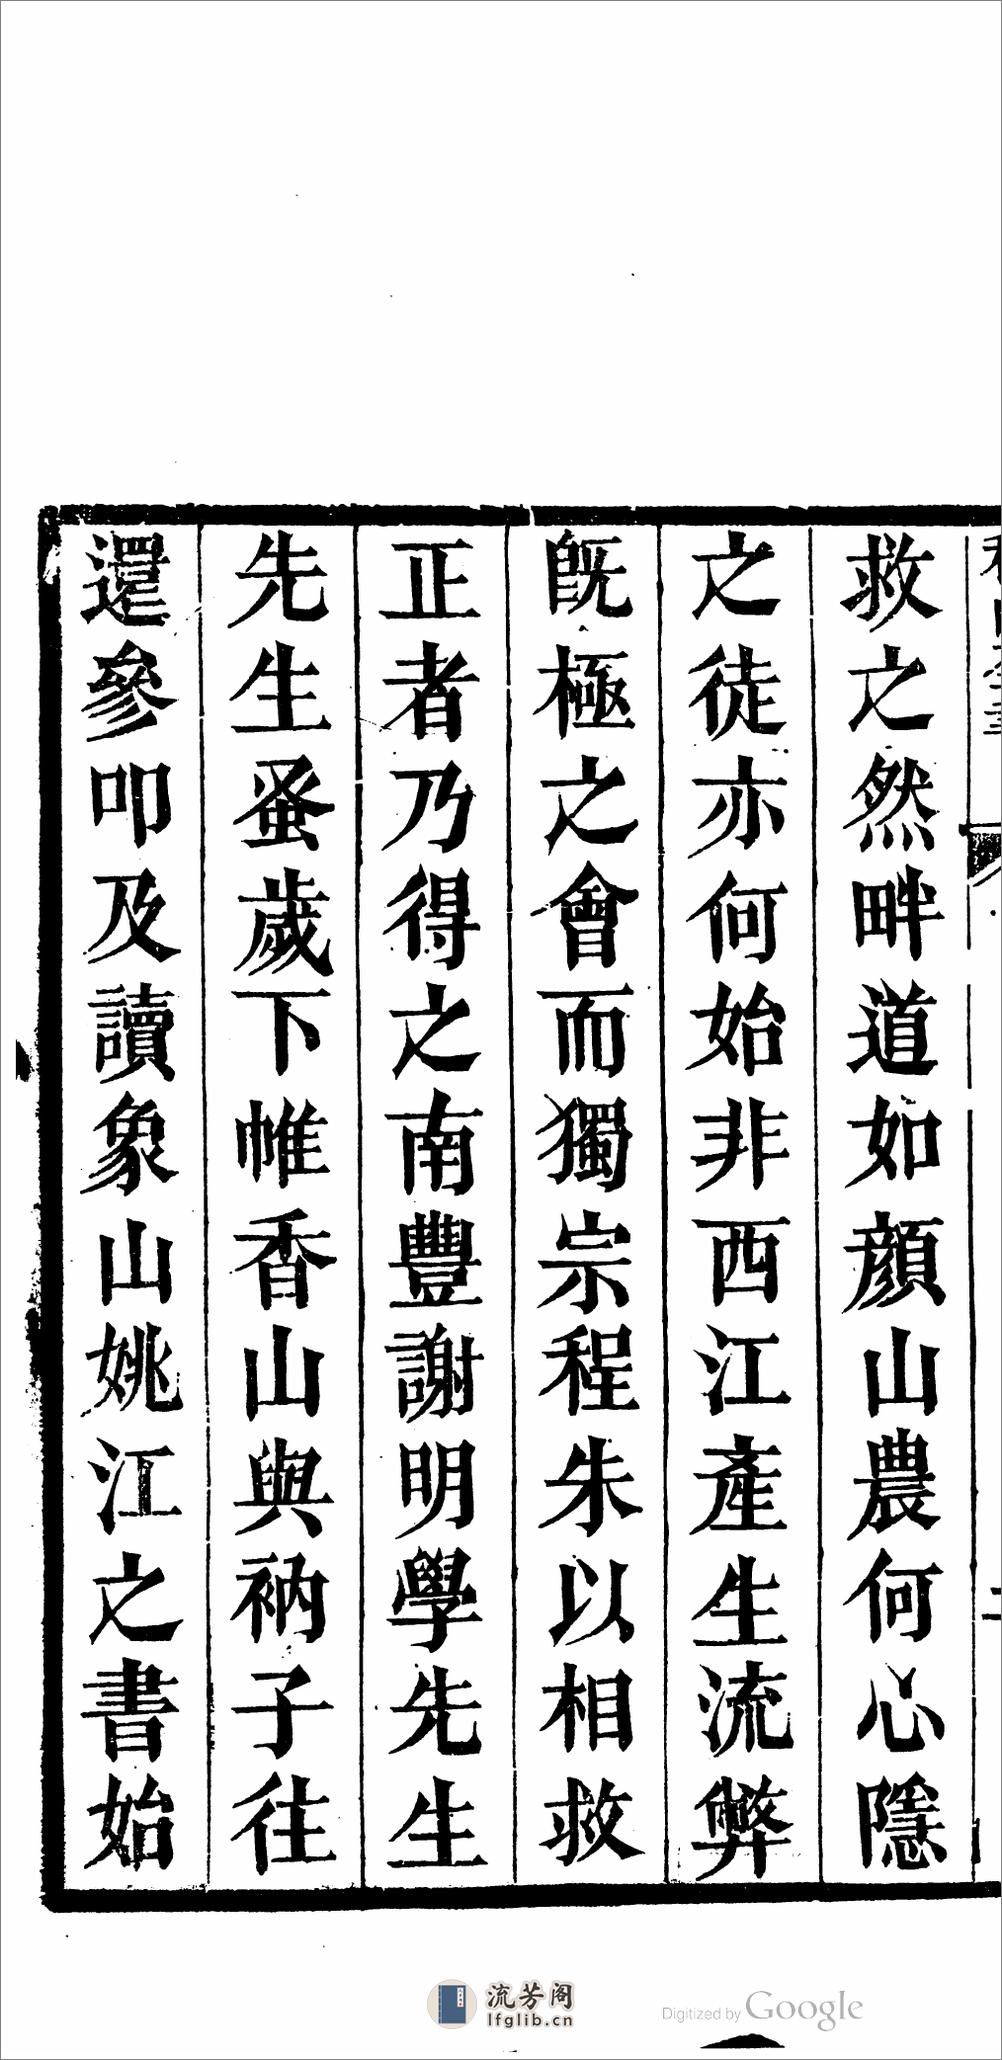 救之然畔道如顔山農何心隱
之徒亦何始非西江產生流弊
既極之會而獨宗程朱以相救
正者乃得之南豐謝明學先生
先生蚤歲下帷香山與衲子往
還參叩及讀象山姚江之書始
流芳阁
lfglib.cn
Digitized by Google